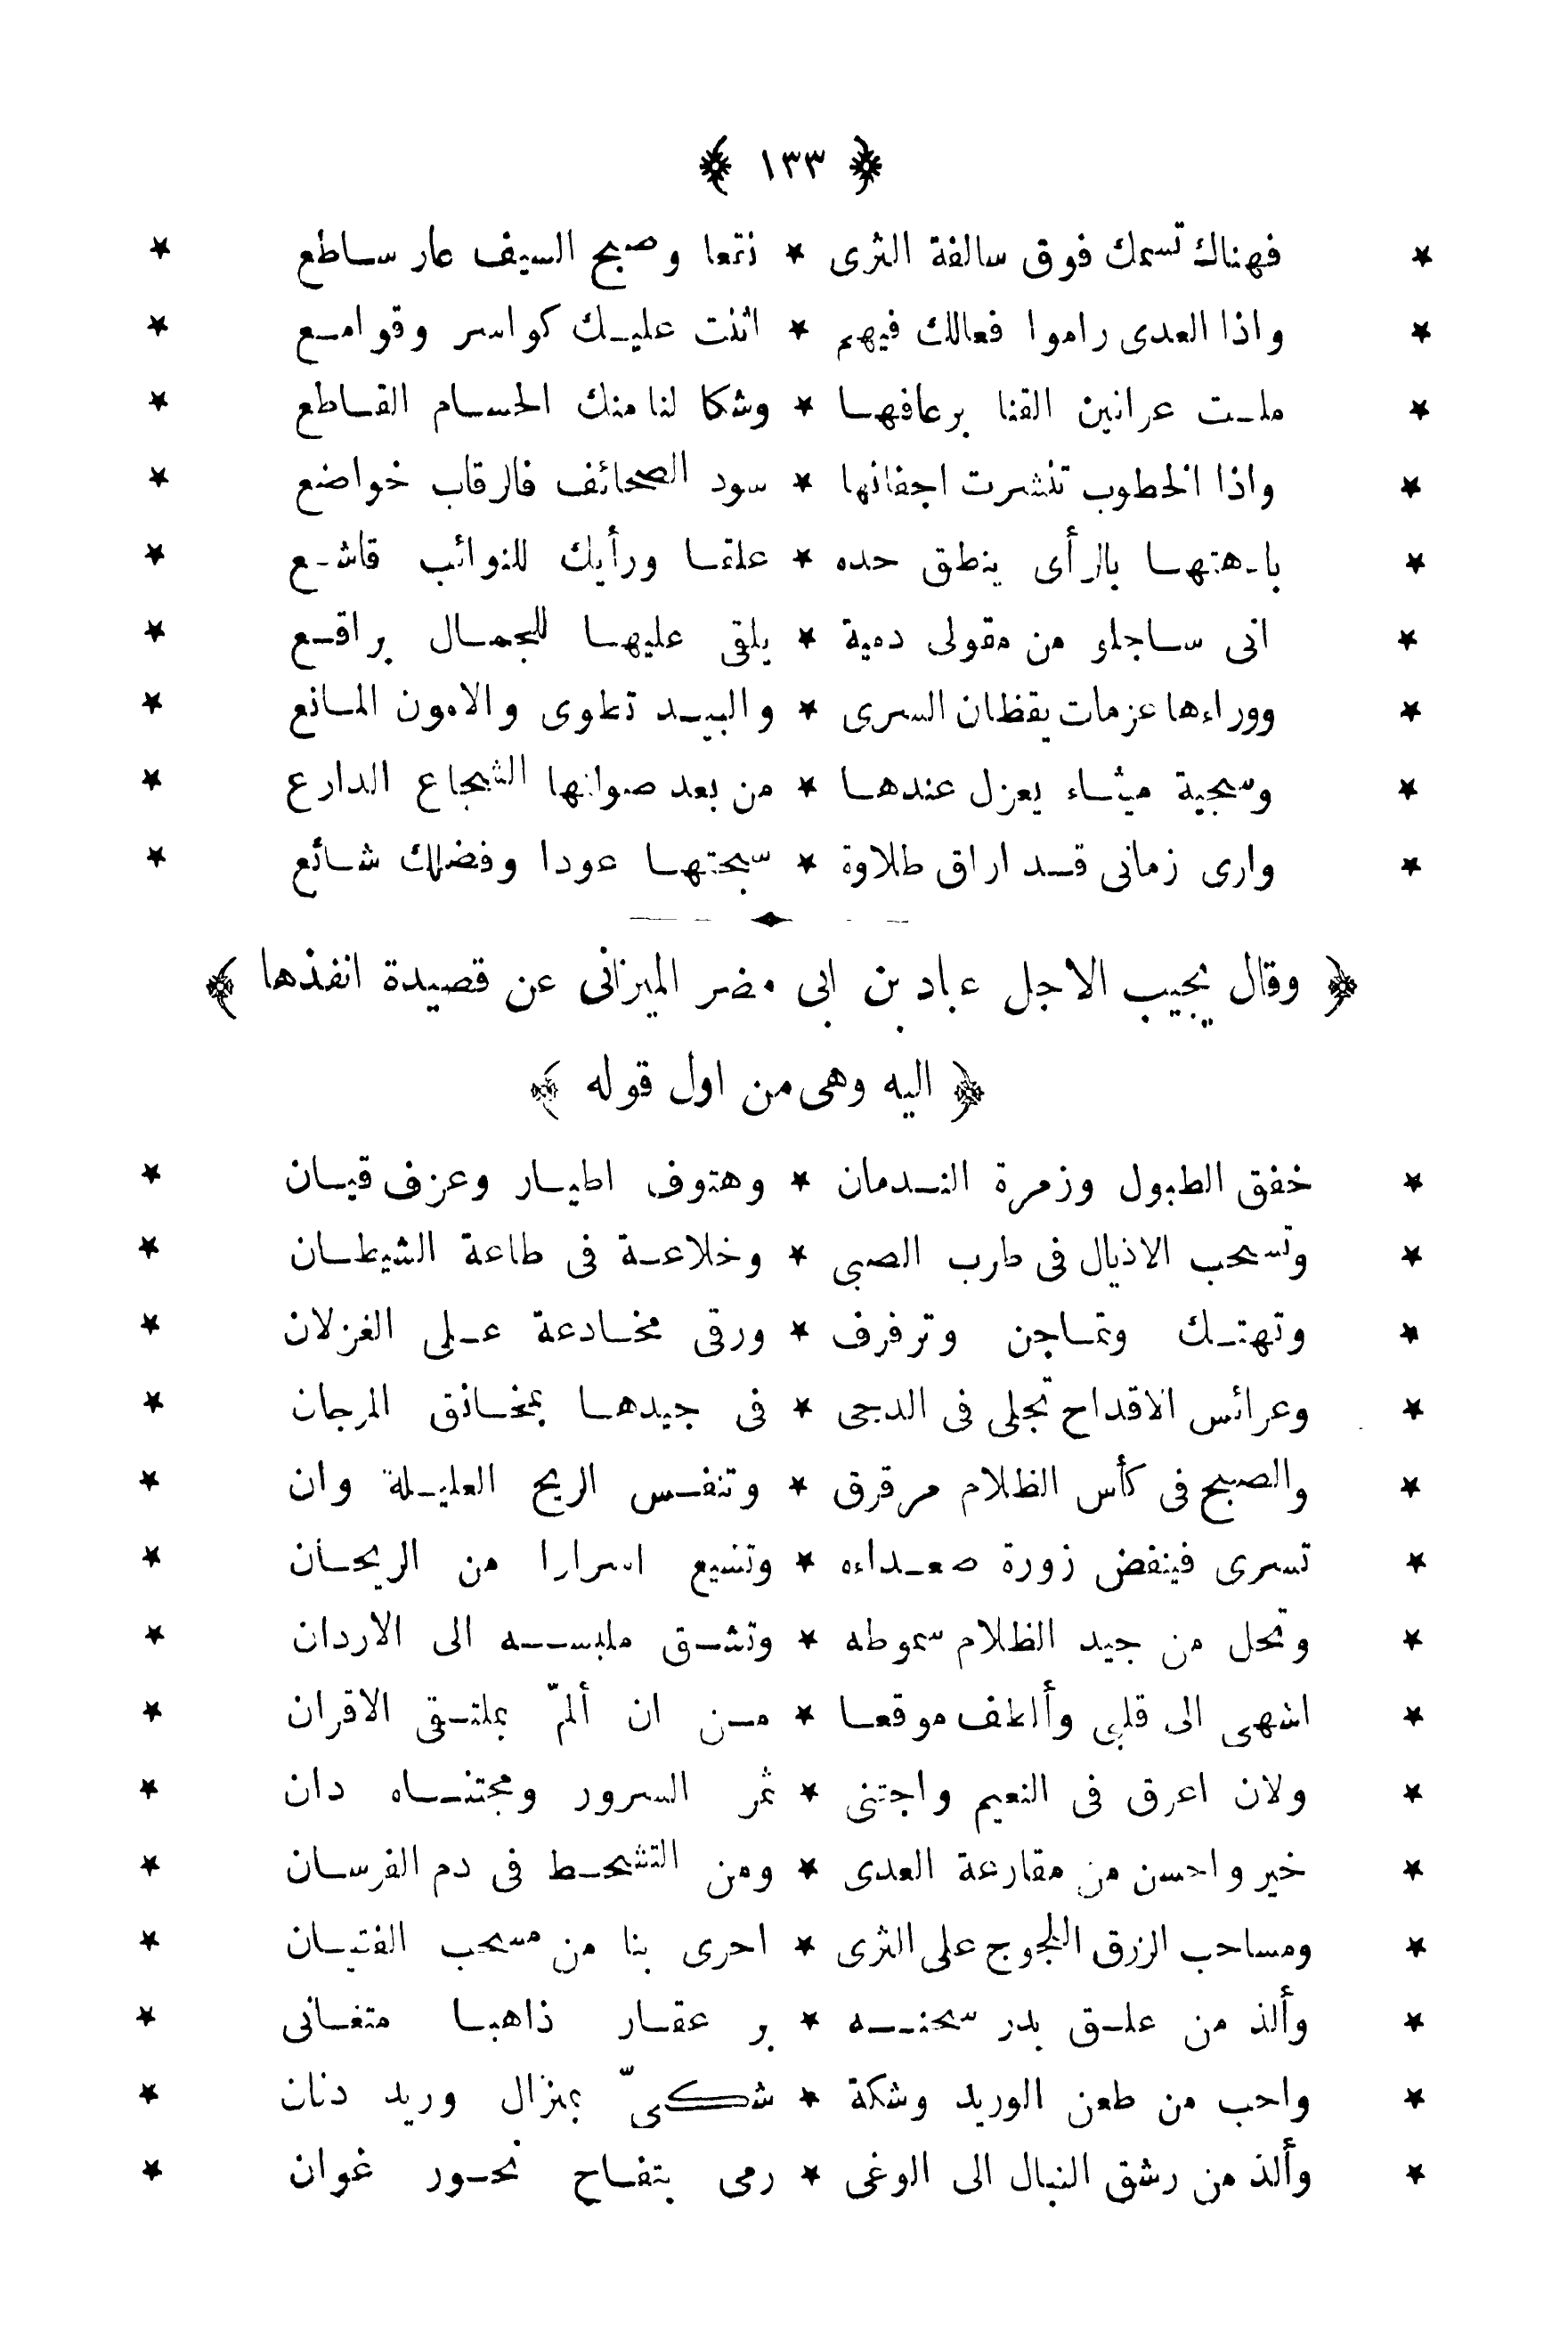 ﴿ ١٣٣ ﴾
* فهناك تسمك فوق سالفة الثرى * نقعا وصبح السيف عار ساطع *
* واذا العدى راموا فعالك فيهم * اثنت عليك كواسر وقوامع *
* ملت عرانين القنا برعافها * وشكا لنا منك الحسام القاطع *
* واذا الخطوب تنشرت اجفانها * سود الصحائف فالرقاب خواضع *
* باهتها بالرأى ينطق حده * علقا ورأيك للنوائب قاشع *
* انى ساجلو من مقولى دمية * يلقى عليها للجمال براقع *
* ووراءها عزمات يقظان السرى * والبيد تطوى والامون المانع *
* وسجية ميثاء يعزل عندها * من بعد صوانها الشجاع الدارع *
* وارى زمانى قد اراق طلاوة * سبحتها عودا وفضلك شائع *
﴿ وقال يجيب الاجل عباد بن ابى مضر الميزانى عن قصيدة انفذها ﴾
﴿ اليه وهى من اول قوله ﴾
* خفق الطبول وزمرة الندمان * وهتوف اطيار وعزف قيان *
* وتسحب الاذيال فى طرب الصبى * وخلاعة فى طاعة الشيطان *
* وتهتك وتماجن وترفرف * ورقى مخادعة على الغزلان *
* وعرائس الاقداح تجلى فى الدجى * فى جيدها بمخانق المرجان *
* والصبح فى كأس الظلام مرقرق * وتنفس الريح العليلة وان *
* تسرى فينفض زورة صعداءه * وتشيع اسرارا من الريحان *
* وتحل من جيد الظلام سموطه * وتشق ملبسه الى الاردان *
* اشهى الى قلبى وألطف موقعا * من ان ألمّ بملتقى الاقران *
* ولان اعرق فى النعيم واجتنى * ثمر السرور ومجتناه دان *
* خير واحسن من مقارعة العدى * ومن التشحط فى دم الفرسان *
* ومساحب الزرق اللجوج على الثرى * احرى بنا من مسحب الفتيان *
* وألذ من علق يدر سحنه * بر عقار ذاهبا متغانى *
* واحب من طعن الوريد وشكة * شكىّ بمنزال وريد دنان *
* وألذ من رشق النبال الى الوغى * رمى بتفاح نحور غوان *